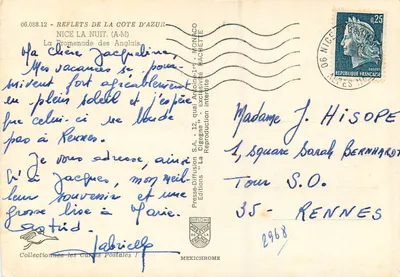 06.088.12 - REFLETS DE LA COTE D'AZUR
NICE LA NUIT. (A-M)
La Promenade des Anglais
Ma chère Jacqueline,
Mes vacances se pour-
suivent fort agréablement
en plein soleil et j'espère
que celui-ci ne boude
pas à Rennes.
Je vous adresse, ainsi
qu'à Jacques, mon meil-
leur souvenir et une
grosse bise à Marie-
Astrid.
Gabrielle
Collectionnez les Cartes Postales !
Presse-Diffusion S.A. - 12, quai Antoine-1er - MONACO
Editions "La Cigogne" - exclusivité HACHETTE
Reproduction interdite
MEXICHROME
06 NICE
0,25
REPUBLIQUE FRANÇAISE
Madame J. HISOPE
1, square Sarah BERNHARDT
Tour S.O.
35 - RENNES
2968